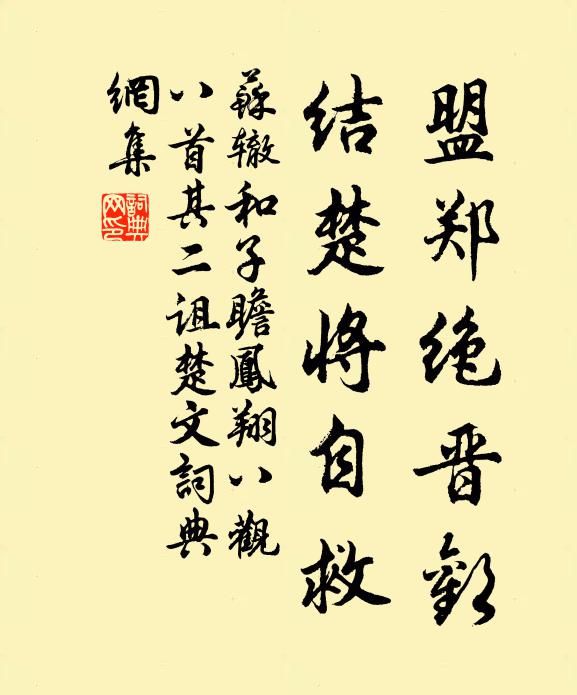 盟郑绝晋歡
结楚将自救
蘇辙和子瞻鳳翔八觀
八首其二诅楚文詞典
網集
詞典網印